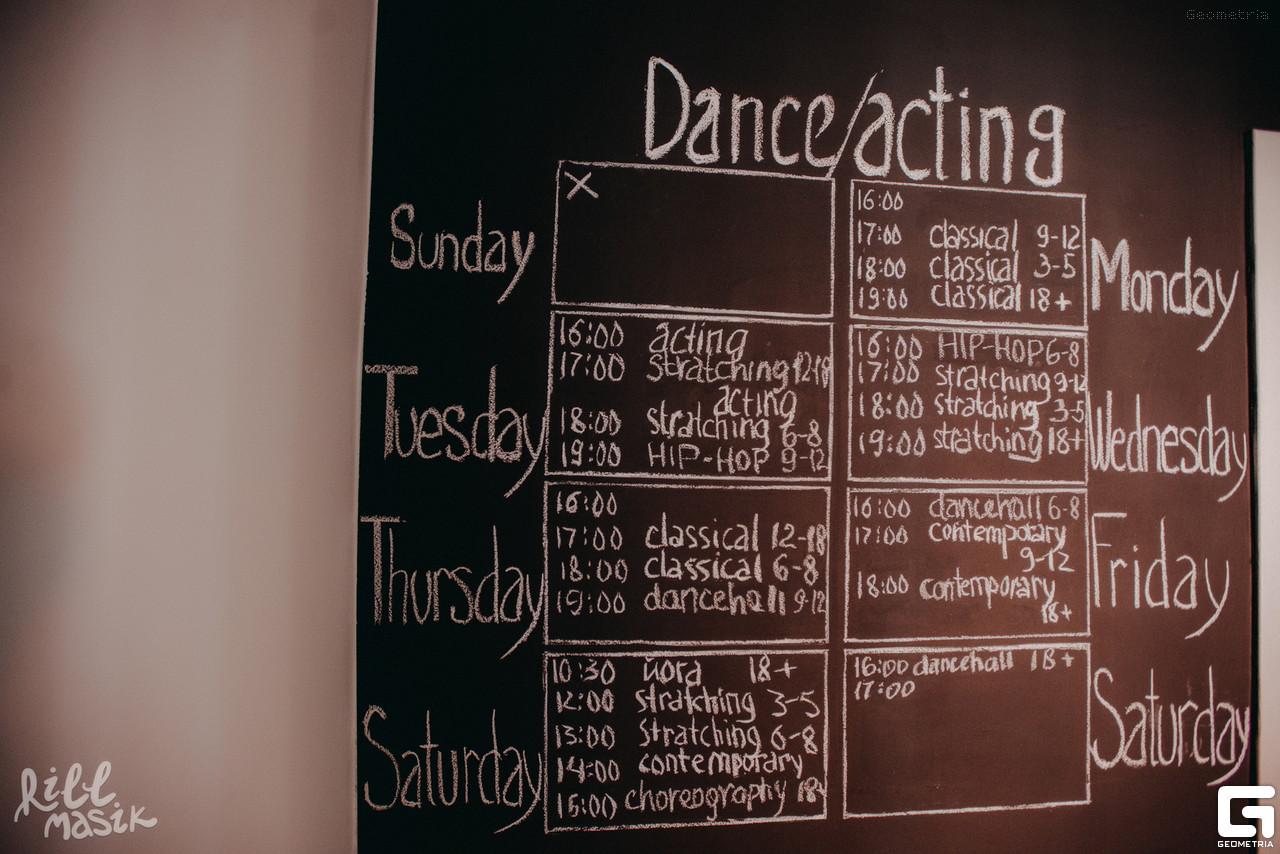 Geometria
Dance/acting
Sunday
X
16:00
17:00 classical 9-12
18:00 classical 3-5
19:00 classical 18+
Monday
Tuesday
16:00 acting
17:00 stratching 12-18
acting
18:00 stratching 6-8
19:00 HIP-HOP 9-12
16:00 HIP-HOP 6-8
17:00 stratching 9-12
18:00 stratching 3-5
19:00 stratching 18+
Wednesday
Thursday
16:00
17:00 classical 12-18
18:00 classical 6-8
19:00 dancehall 9-12
16:00 dancehall 6-8
17:00 contemporary
9-12
18:00 contemporary
18+
Friday
Saturday
10:30 йога 18+
12:00 stratching 3-5
13:00 stratching 6-8
14:00 contemporary
15:00 choreography 18+
16:00 dancehall 18+
17:00
Saturday
kill
masik
GEOMETRIA